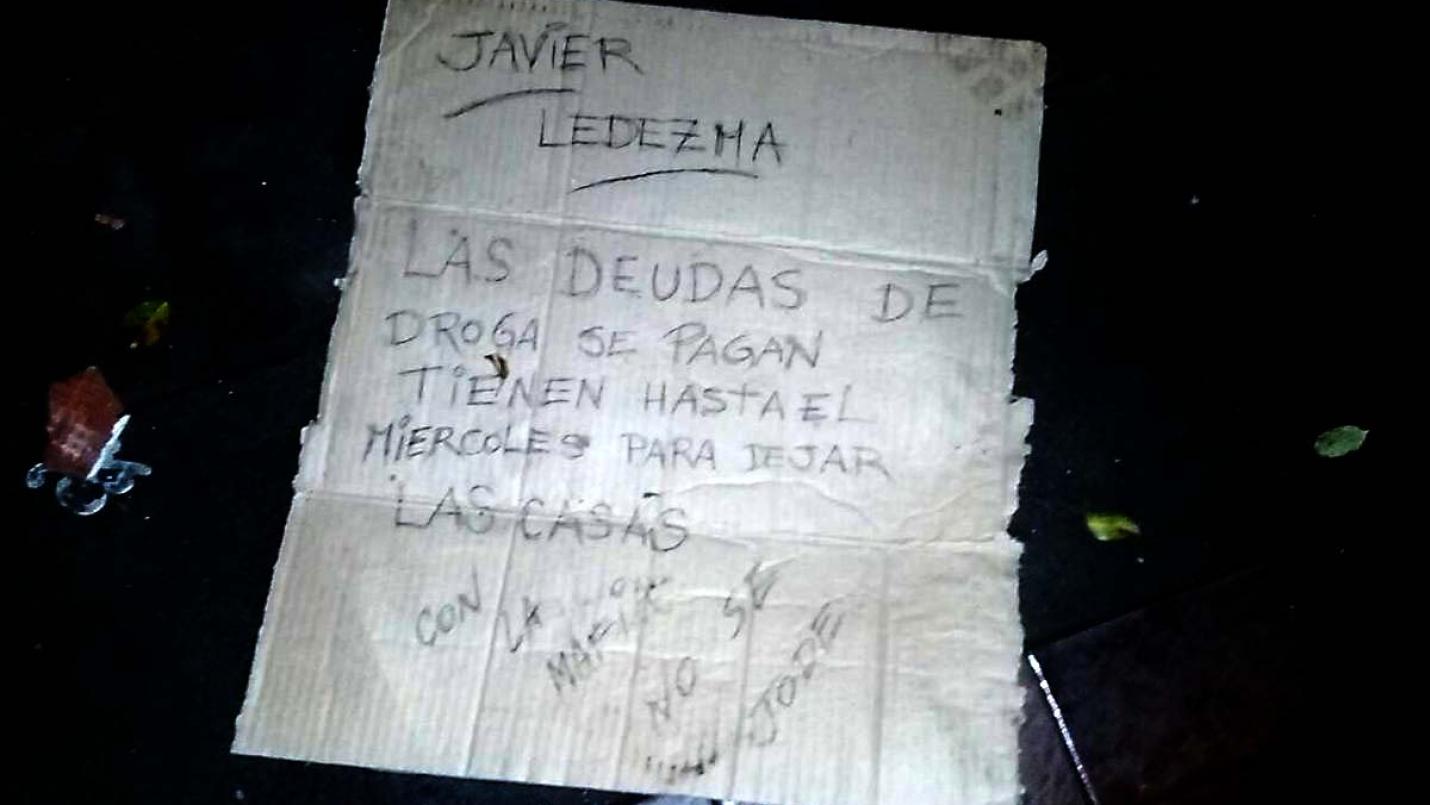 JAVIER
LEDEZMA
LAS DEUDAS DE
DROGA SE PAGAN
TIENEN HASTA EL
MIERCOLES PARA DEJAR
LAS CASAS
CON LA MAFIA NO SE JODE